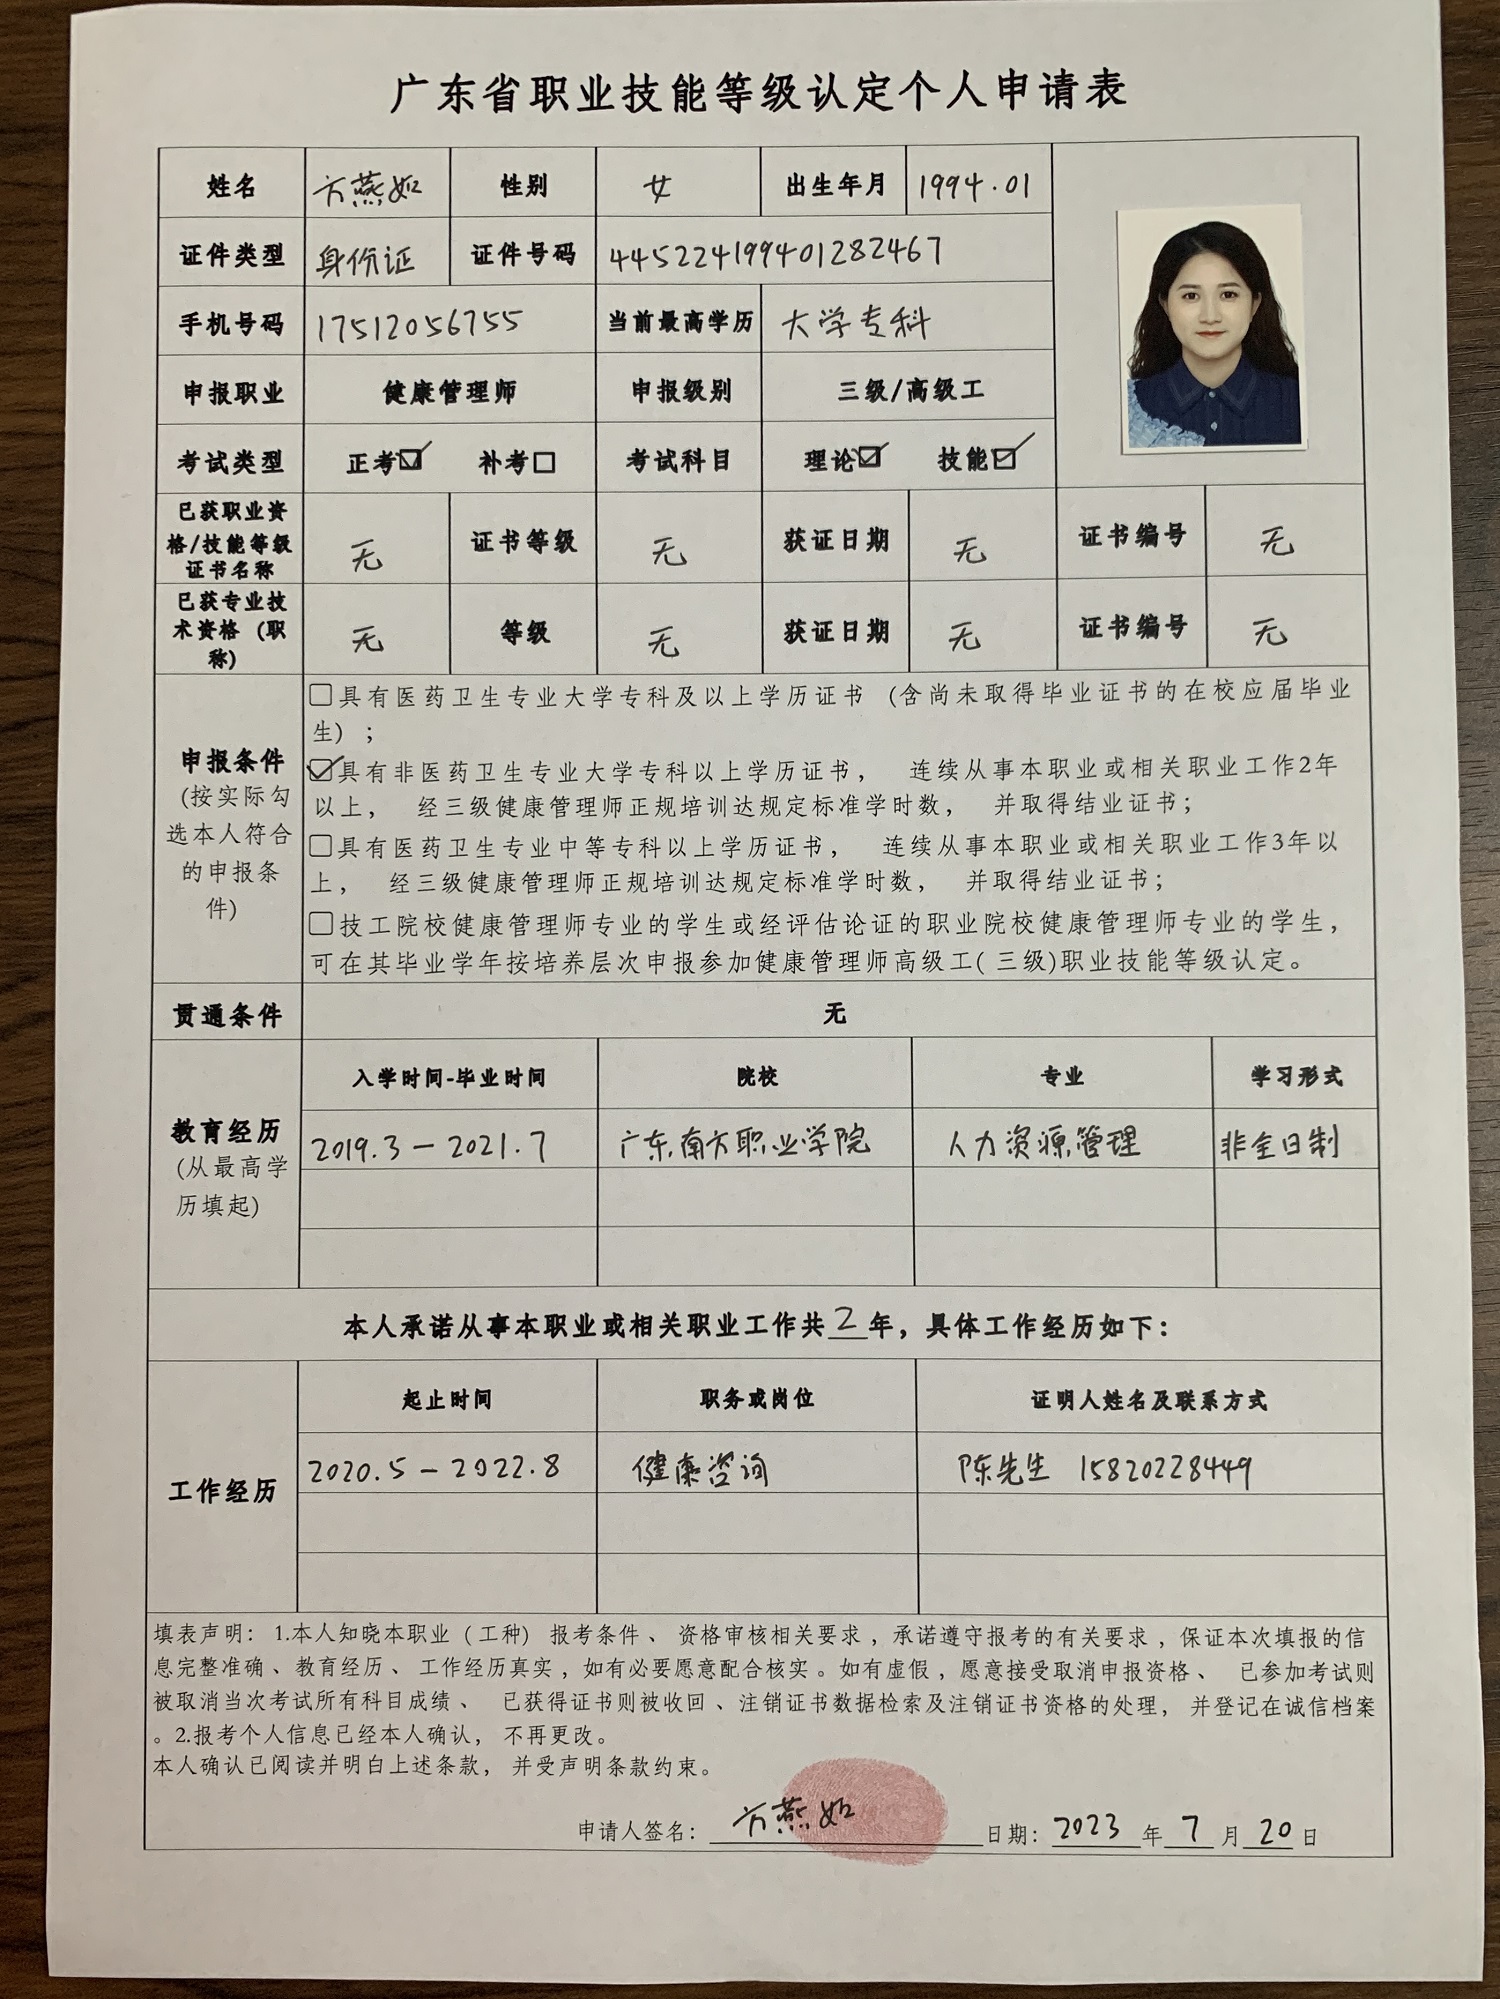 广东省职业技能等级认定个人申请表
姓名 方燕如 性别 女 出生年月 1994.01
证件类型 身份证 证件号码 445224199401282467
手机号码 17512056755 当前最高学历 大学专科
申报职业 健康管理师 申报级别 三级/高级工
考试类型 正考☑ 补考☐ 考试科目 理论☑ 技能☑
已获职业资
格/技能等级
证书名称 无 证书等级 无 获证日期 无 证书编号 无
已获专业技
术资格(职
称) 无 等级 无 获证日期 无 证书编号 无
申报条件
(按实际勾
选本人符合
的申报条
件)
☐具有医药卫生专业大学专科及以上学历证书(含尚未取得毕业证书的在校应届毕业
生);
☑具有非医药卫生专业大学专科以上学历证书, 连续从事本职业或相关职业工作2年
以上, 经三级健康管理师正规培训达规定标准学时数, 并取得结业证书;
☐具有医药卫生专业中等专科以上学历证书, 连续从事本职业或相关职业工作3年以
上, 经三级健康管理师正规培训达规定标准学时数, 并取得结业证书;
☐技工院校健康管理师专业的学生或经评估论证的职业院校健康管理师专业的学生,
可在其毕业学年按培养层次申报参加健康管理师高级工(三级)职业技能等级认定。
贯通条件 无
教育经历
(从最高学
历填起)
入学时间-毕业时间 院校 专业 学习形式
2019.3-2021.7 广东南方职业学院 人力资源管理 非全日制
本人承诺从事本职业或相关职业工作共2年,具体工作经历如下:
工作经历
起止时间 职务或岗位 证明人姓名及联系方式
2020.5-2022.8 健康咨询 陈先生 15820228449
填表声明: 1.本人知晓本职业(工种)报考条件、资格审核相关要求,承诺遵守报考的有关要求,保证本次填报的信
息完整准确、教育经历、工作经历真实,如有必要愿意配合核实。如有虚假,愿意接受取消申报资格、 已参加考试则
被取消当次考试所有科目成绩、 已获得证书则被收回、注销证书数据检索及注销证书资格的处理, 并登记在诚信档案
。2.报考个人信息已经本人确认, 不再更改。
本人确认已阅读并明白上述条款, 并受声明条款约束。
申请人签名: 方燕如 日期: 2023 年 7 月 20 日